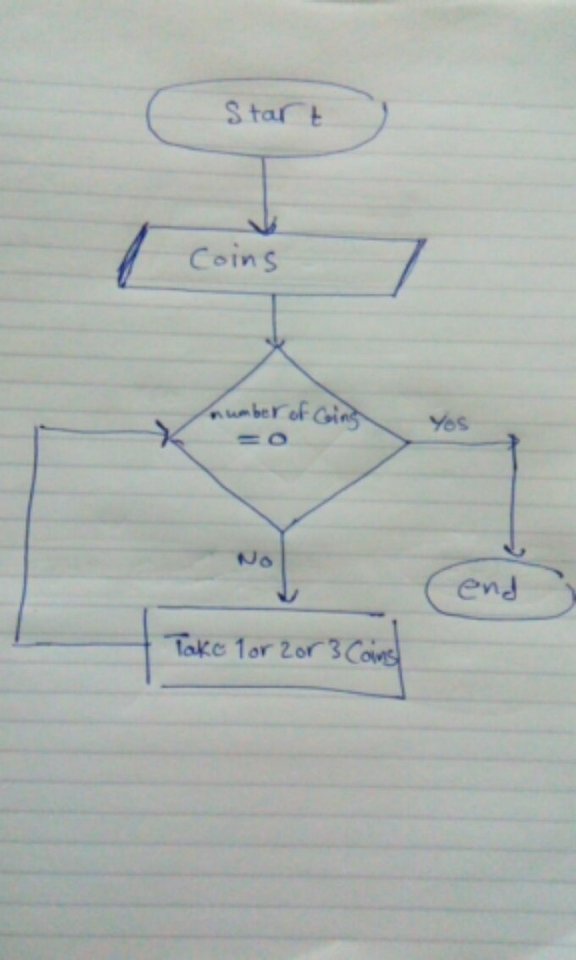 Start
Coins
number of Coins
= 0
Yes
No
end
Take 1 or 2 or 3 Coins